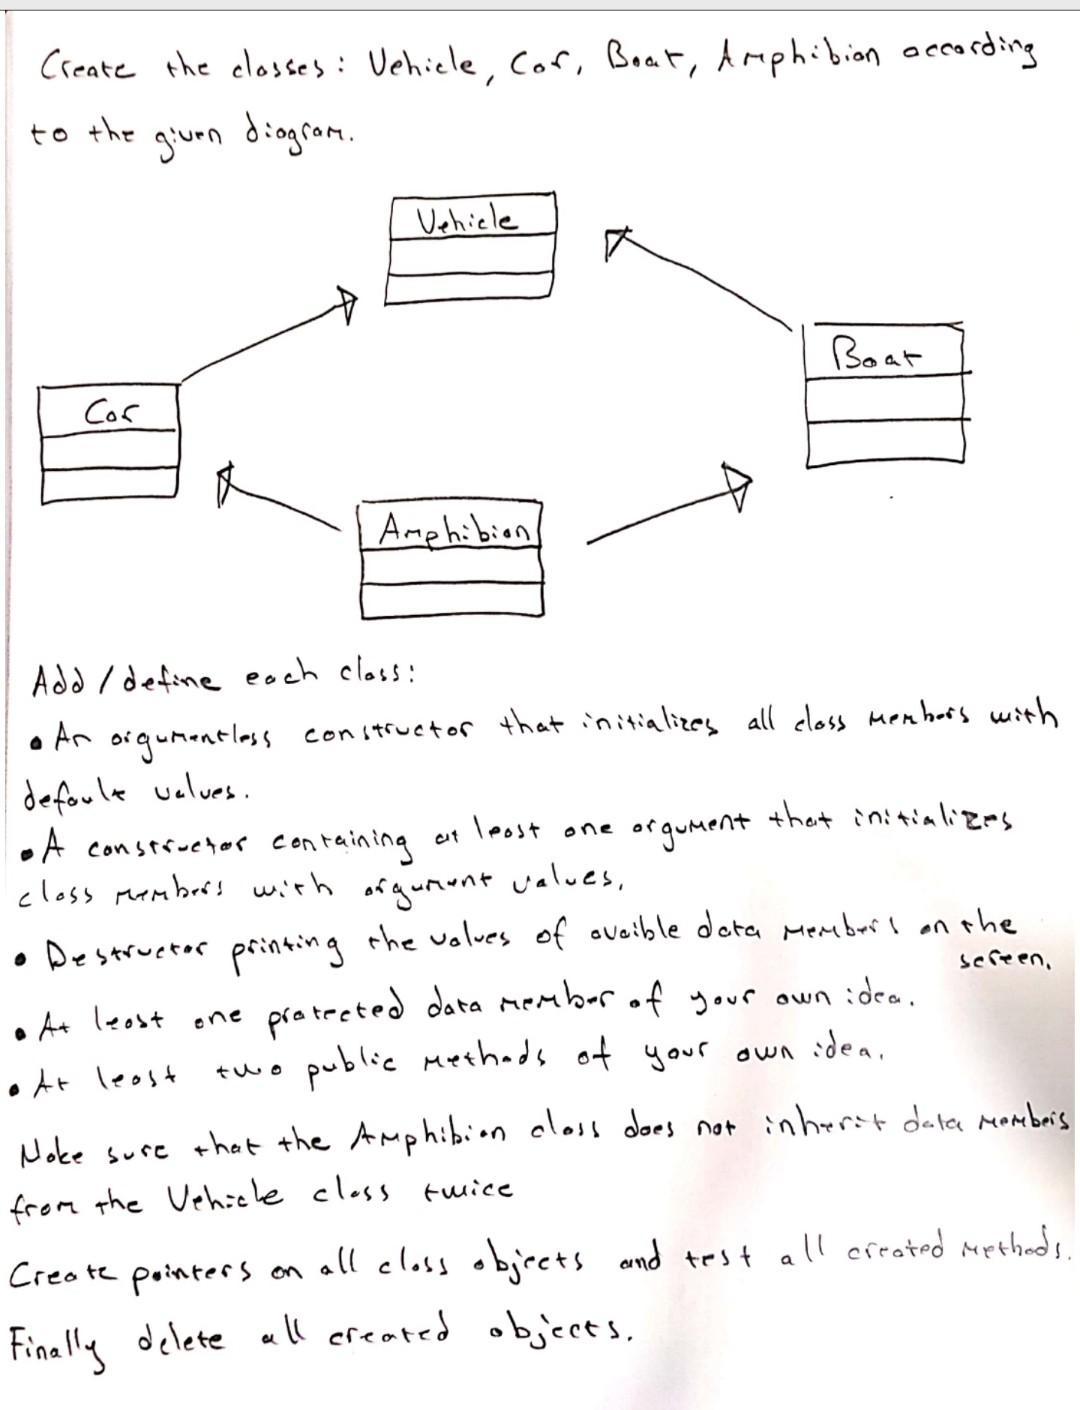 Create the classes: Vehicle, Car, Boat, Amphibian according
to the given diagram.
Vehicle
Boat
Car
Amphibian
Add / define each class:
• An argumentless constructor that initializes all class members with
default values.
• A constructor containing at least one argument that initializes
class members with argument values,
• Destructor printing the values of avaible data members on the
screen.
• At least one protected data member of your own idea.
• At least two public methods of your own idea,
Make sure that the Amphibian class does not inherit data members
from the Vehicle class twice
Create pointers on all class objects and test all created methods.
Finally delete all created objects.